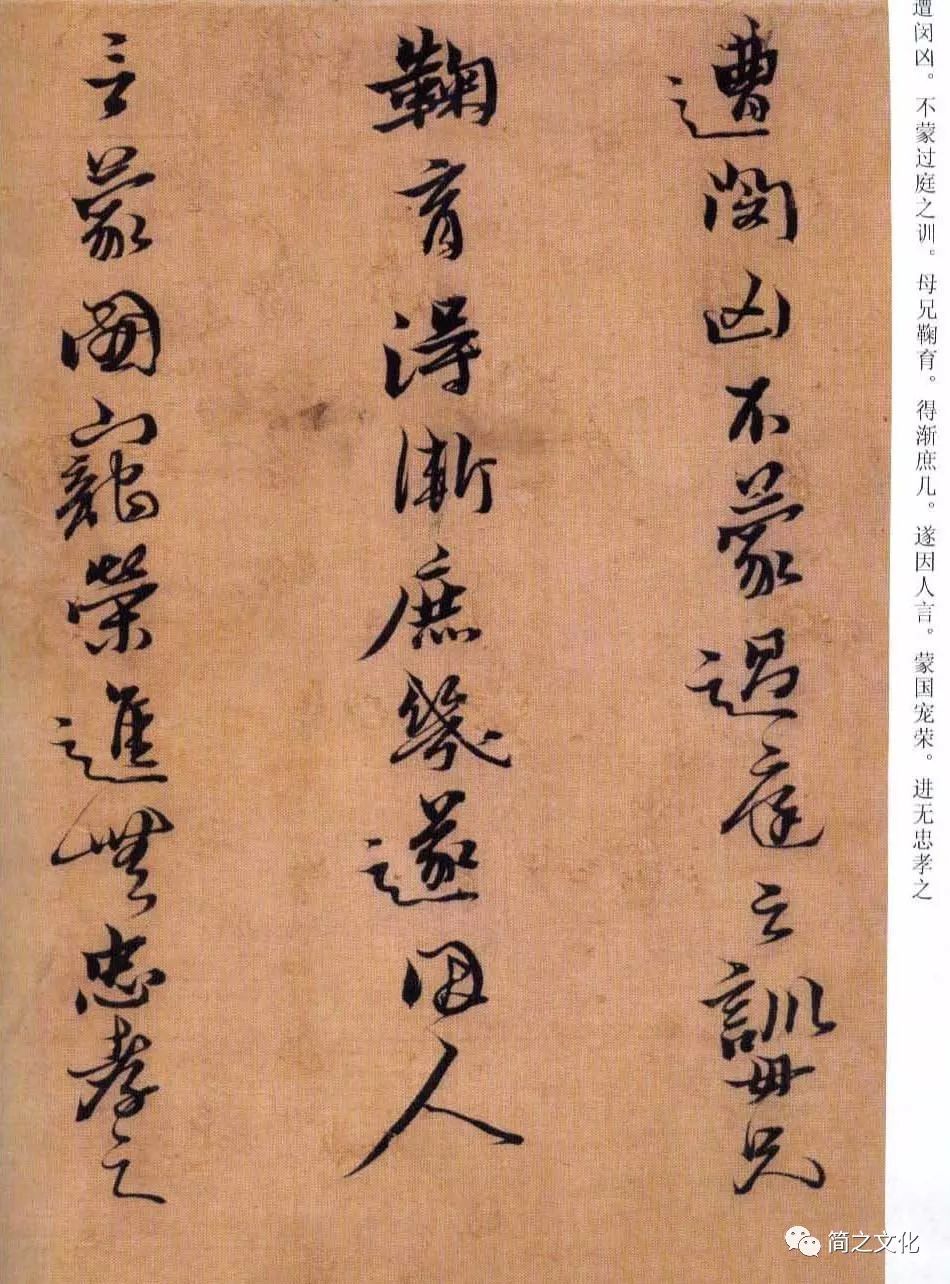 遭闵凶。不蒙过庭之训。母兄鞠育。得渐庶几。遂因人言。蒙国宠荣。进无忠孝之
遭閔凶不蒙過庭之訓母兄
鞠育得漸庶幾遂因人
言蒙國寵榮進無忠孝之
简之文化